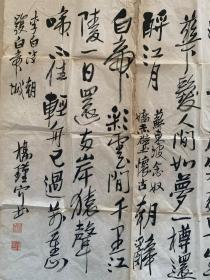 華髮人間如夢一樽還
酹江月
蘇東坡念奴
嬌赤壁懷古
朝辭
白帝彩雲間千里江
陵一日還兩岸猿聲
啼不住輕舟已過萬重
李白詩朝
發白帝城